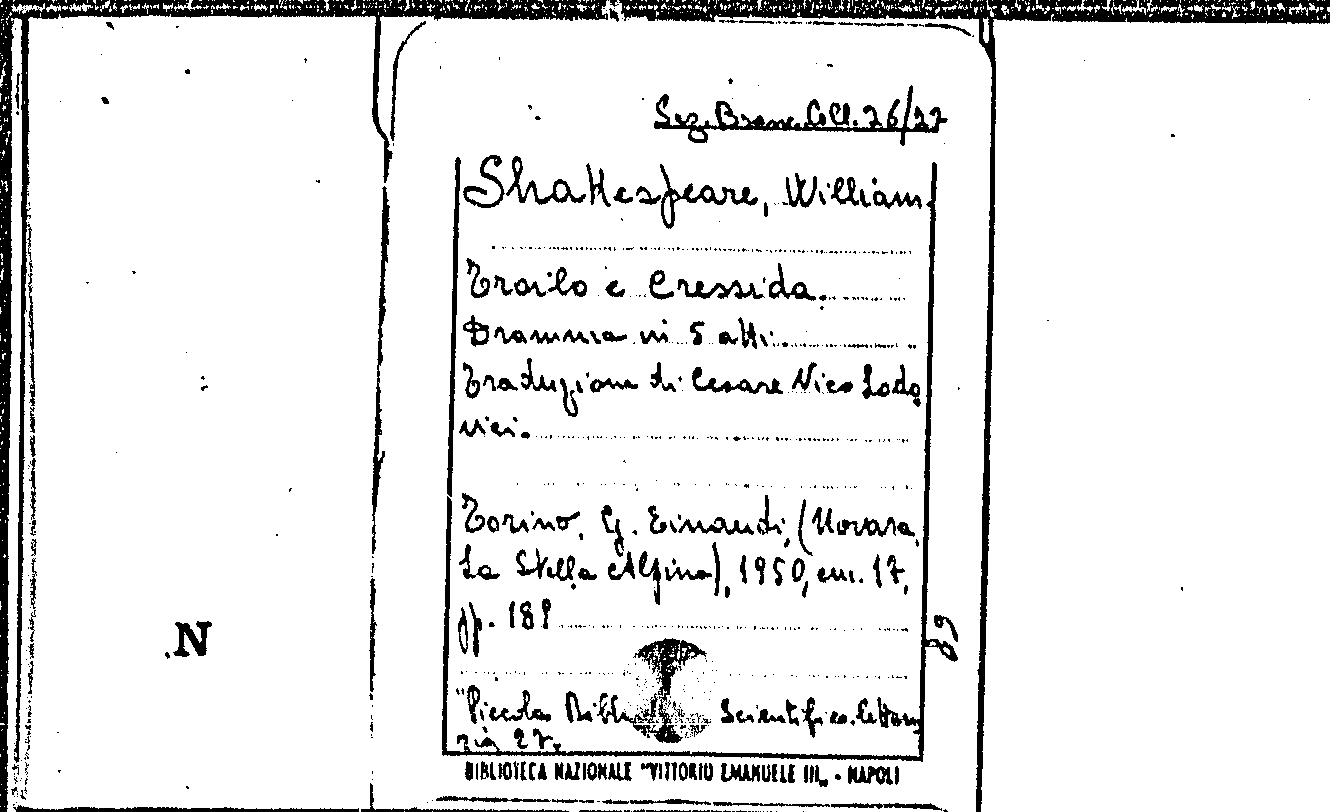 Sez. Branc. Coll. 26/27
Shakespeare, William.
Troilo e Cressida.
Dramma in 5 atti.
Traduzione di Cesare Nico Lodo
vici.
Torino, G. Einaudi, (Novara,
La Stella Alpina), 1950, cm. 17,
pp. 189
89
N
"Piccola Bibl Scientifico-Lettera
ria 27.
BIBLIOTECA NAZIONALE "VITTORIO EMANUELE III„ - NAPOLI